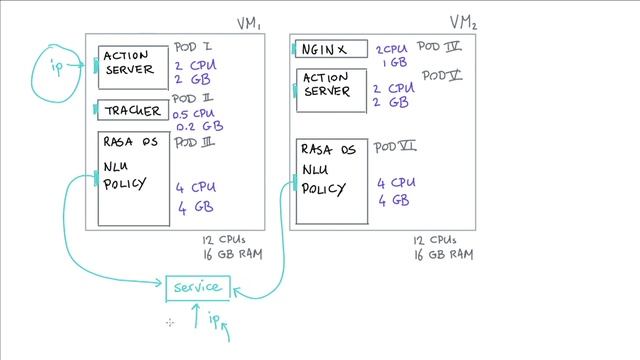 VM1
ip
ACTION
SERVER
POD I
2 CPU
2 GB
TRACKER
POD II
0.5 CPU
0.2 GB
RASA OS
NLU
POLICY
POD III
4 CPU
4 GB
12 CPUs
16 GB RAM
VM2
NGINX
2CPU
1 GB
POD IV
ACTION
SERVER
2 CPU
2 GB
POD V
RASA OS
NLU
POLICY
POD VI
4 CPU
4 GB
12 CPUs
16 GB RAM
service
ip